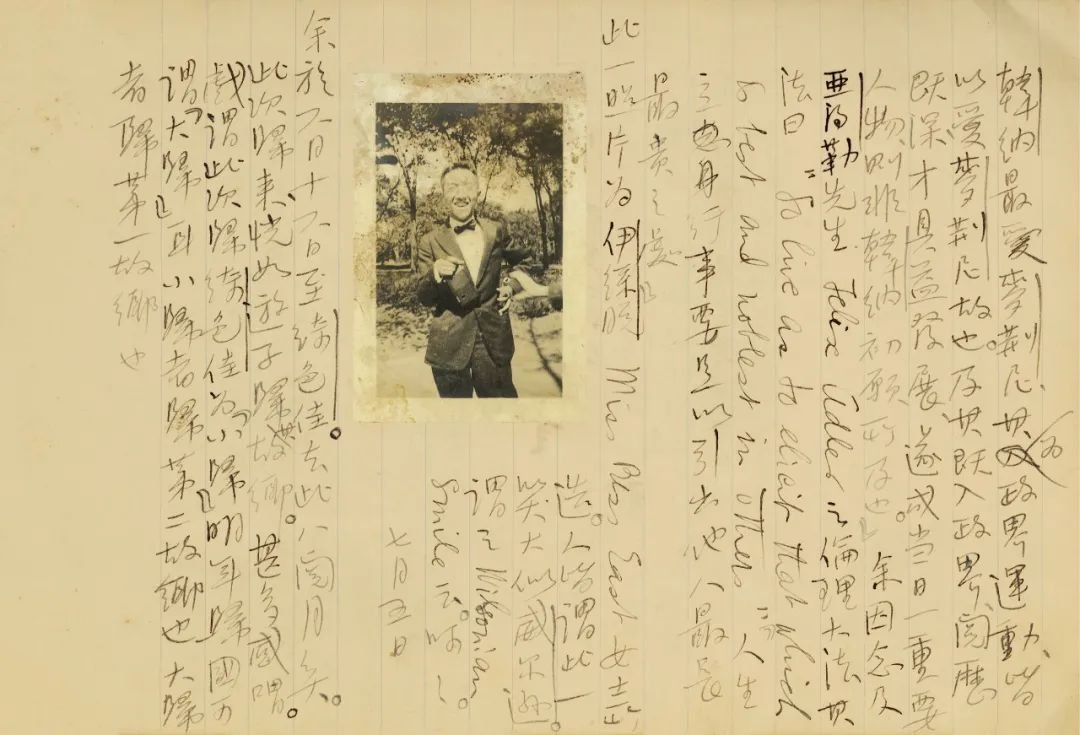 韓納最愛麥荆尼、其为政界運動、皆
以愛麥荆尼故也。及其既入政界、閱歷
既深才具益發展、遂成當日一重要
人物、則非韓納初願所及也。」余因念及
亞得勒先生 Felix Adler 之倫理大法其
法曰 "So live as to elicit that which
is best and noblest in others" 人生
立身行事要足以引出他人最長
最貴之處」
此一照片为伊綵脫 Miss Bess East 女士所
造。人皆謂此一
笑大似威尔逊。
謂之 Wilsonian
Smile 云。
七月五日
余於六月十六日至綺色佳。去此八閱月矣。
此次歸來、恍如遊子歸其故鄉。甚多感喟。
戲謂此次歸綺色佳为「小歸」、明年歸國乃
謂「大歸」耳小歸者歸第二故鄉也大歸
者歸第一故鄉也